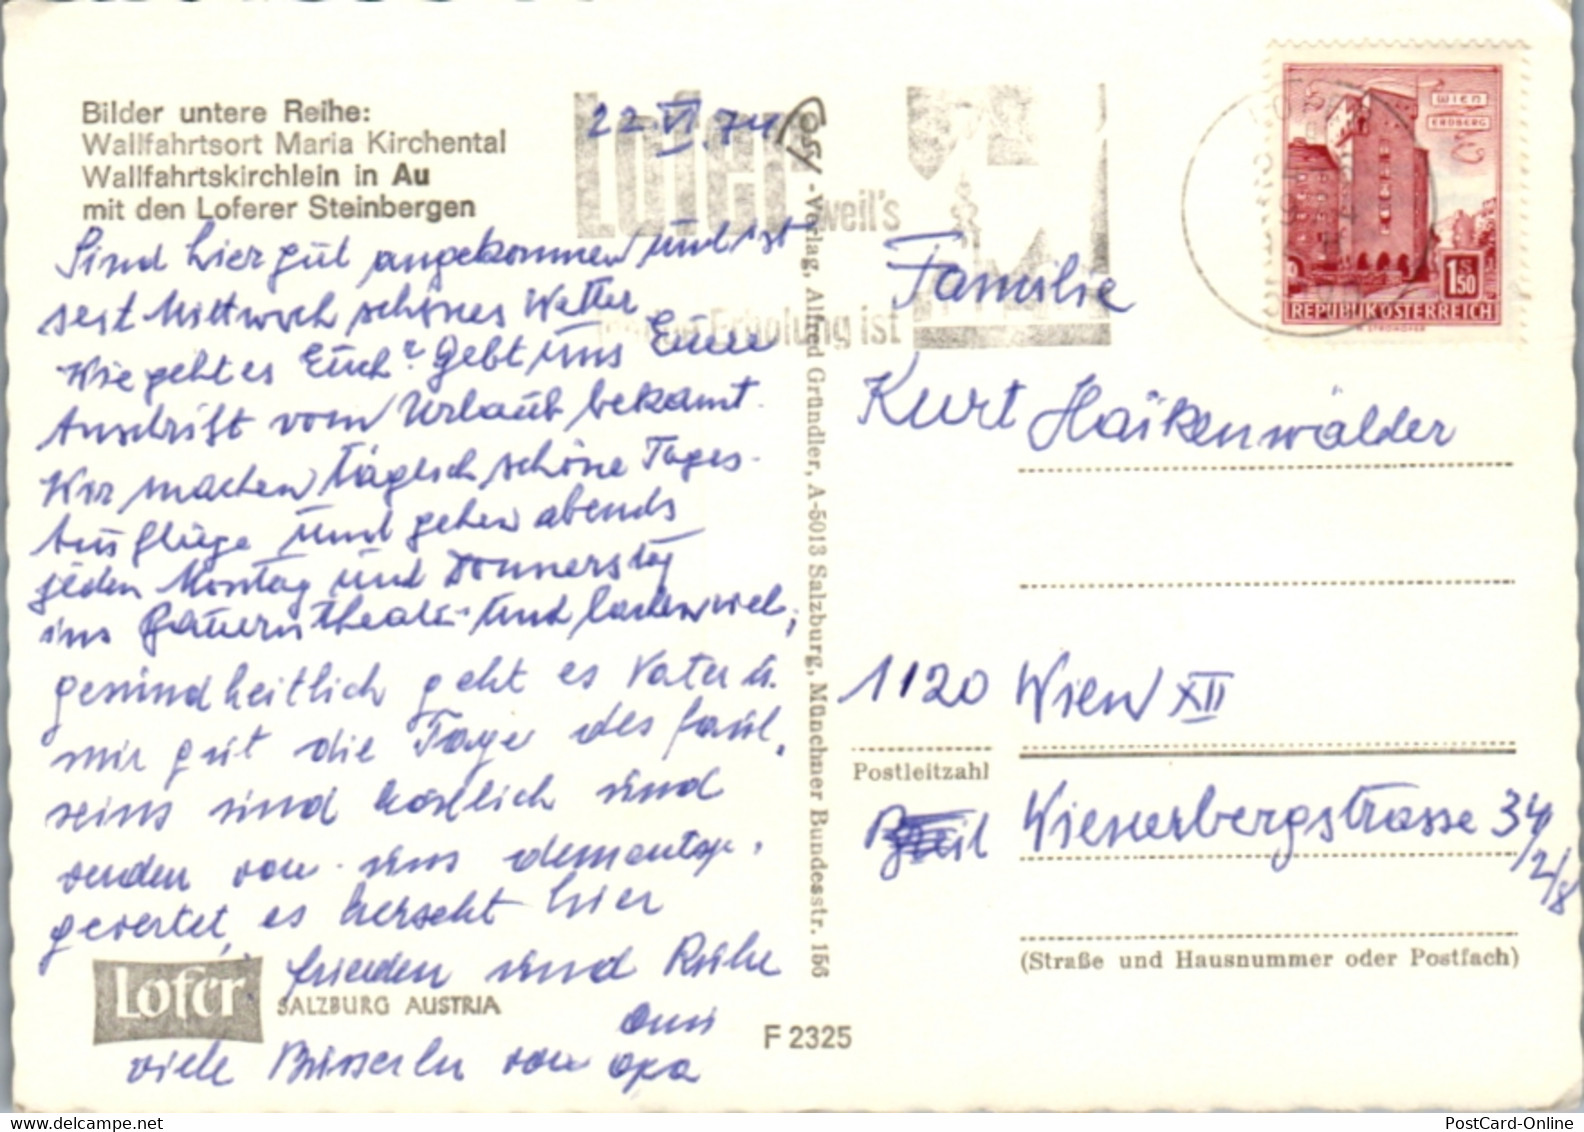 Bilder untere Reihe:
Wallfahrtsort Maria Kirchental
Wallfahrtskirchlein in Au
mit den Loferer Steinbergen
22.VI.74
Sind hier gut angekommen und ist
seit Mittwoch schönes Wetter
Wie geht es Euch? Gebt uns Eure
Anschrift vom Urlaub bekannt.
Wir machen täglich schöne Tages-
Ausflüge und gehen abends
jeden Montag und Donnerstag
ins Bauerntheater und lachen viel,
gesundheitlich geht es Vater u.
mir gut die Tage des Faul,
seins sind köstlich und
werden von uns dementspr,
gewertet, es herscht hier
frieden und Ruhe
viele Busserln von
Omi
Opa
Lofer
SALZBURG AUSTRIA
F 2325
-Verlag, Alfred Gründler, A-5013 Salzburg, Münchner Bundesstr. 156
Lofer
weil's
Erholung ist
WIEN
ERDBERG
1S50
REPUBLIK ÖSTERREICH
Familie
Kurt Haikenwälder
1120 Wien XII
Postleitzahl
Wienerbergstrasse 34/2/8
(Straße und Hausnummer oder Postfach)
PostCard-Online